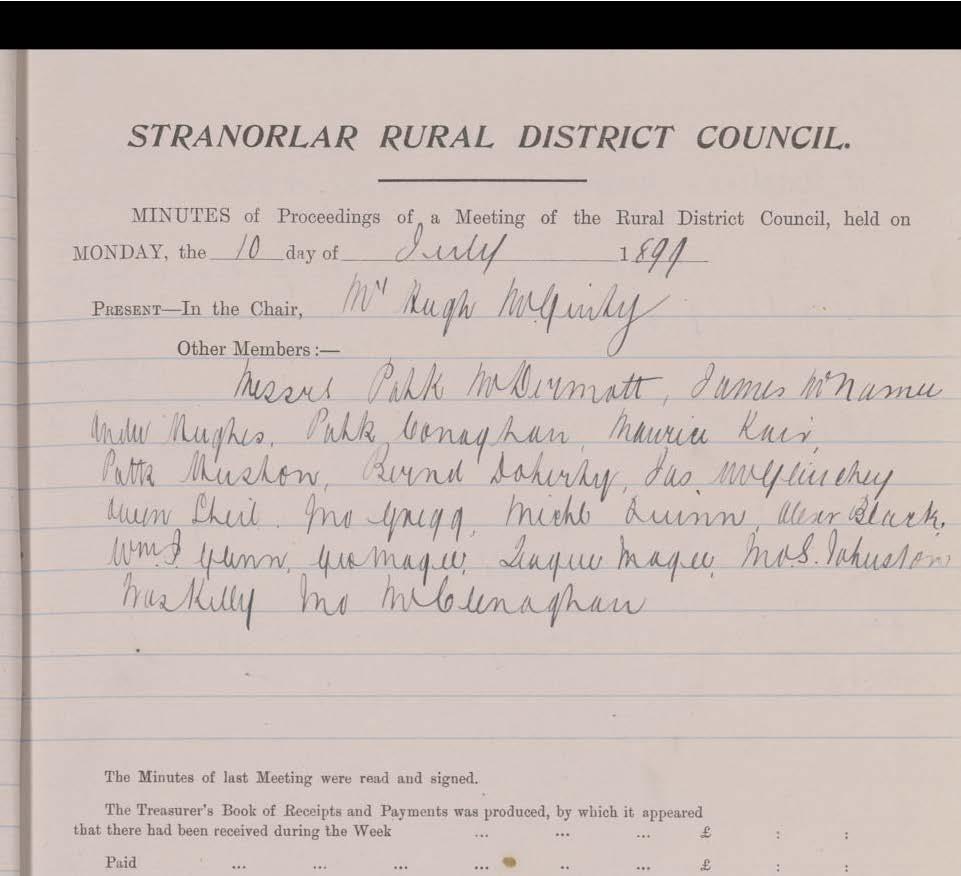 STRANORLAR RURAL DISTRICT COUNCIL.
MINUTES of Proceedings of a Meeting of the Rural District Council, held on
MONDAY, the 10 day of July 1899
PRESENT—In the Chair, Mr Hugh McGinty
Other Members :—
Messrs Patk McDermott, James McNamee
Andw Hughes, Patk Conaghan, Maurice
Patk, Bernd Doherty, Jas McGlinchey
Owen Sheil. Jno Gregg, Michl Quinn, Alexr Black,
Wm J. Gunn, Geo Magee, Teague Magee, Jno S. Johnston
Kelly Jno McClenaghan
The Minutes of last Meeting were read and signed.
The Treasurer's Book of Receipts and Payments was produced, by which it appeared
that there had been received during the Week ... ... ... £ : :
Paid ... ... ... ... .. ... £ : :